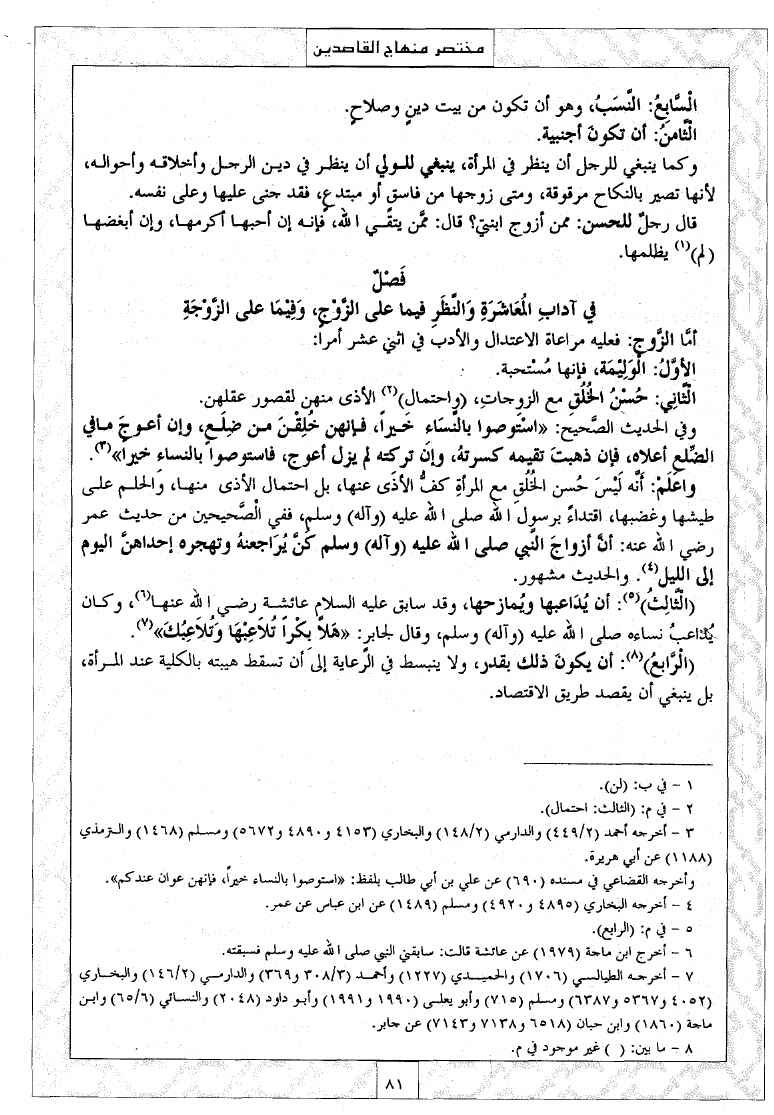 مختصر منهاج القاصدين
الْسَّابِعُ: الْنَّسَبُ، وهو أن تكون من بيت دينٍ وصلاحٍ.
الْثَّامنُ: أن تكونَ أجنبية.
وكما ينبغي للرجل أن ينظر في المرأة، ينبغي للولي أن ينظر في دين الرجل وأخلاقه وأحواله،
لأنها تصير بالنكاح مرقوقة، ومتى زوجها من فاسق أو مبتدع، فقد جنى عليها وعلى نفسه.
قال رجلٌ للحسن: ممن أزوج ابنتي؟ قال: ممَّن يتقي الله، فإنه إن أحبها أكرمها، وإن أبغضها
(لم)(١) يظلمها.
فَصْلٌ
في آداب الْمُعَاشَرَةِ وَالْنَّظَرِ فيما على الزَّوْجِ، وَفِيْمَا على الزَّوْجَةِ
أمَّا الزَّوج: فعليه مراعاة الاعتدال والأدب في اثني عشر أمراً:
الأوَّلُ: الْوَلِيْمَة، فإنها مُسْتحبة.
الْثَّانِي: حُسْنُ الْخُلُقِ مع الزوجاتِ، (واحتمال)(٢) الأذى منهن لقصور عقلهن.
وفي الحديث الصَّحيح: «اسْتوصوا بالنِّساءِ خَيراً، فإنهن خُلِقْنَ من ضِلَعٍ، وإن أعوجَ مافي
الضِّلعِ أعلاه، فإن ذهبتَ تقيمه كسرتهُ، وإن تركته لم يزل أعوج، فاستوصوا بالنساء خيراً»(٣).
واعْلَمْ: أنَّه لَيْسَ حُسن الخُلُقِ مع المرأةِ كفُّ الأذى عنها، بل احتمال الأذى منها، والحلم على
طيشها وغضبها، اقتداءً برسول الله صلى الله عليه (وآله) وسلم، ففي الْصَّحيحين من حديث عمر
رضي الله عنه: أنَّ أزواجَ النَّبي صلى الله عليه (وآله) وسلم كنَّ يُرَاجعنهُ وتهجره إحداهنَّ اليوم
إلى الليل(٤). والحديث مشهور.
(الْثَّالِثُ)(٥): أن يُدَاعبها ويُمازحها، وقد سابق عليه السلام عائشة رضي الله عنها(٦)، وكان
يُدَاعبُ نساءه صلى الله عليه (وآله) وسلم، وقال لجابرٍ: «هَلاَّ بِكْراً تُلاَعِبُهَا وَتُلاَعِبُكَ»(٧).
(الْرَّابعُ)(٨): أن يكونَ ذلك بقدر، ولا ينبسط في الرِّعاية إلى أن تسقط هيبته بالكلية عند المرأة،
بل ينبغي أن يقصد طريق الاقتصاد.
١ - في ب: (لن).
٢ - في م: (الثالث: احتمال).
٣ - أخرجه أحمد (٤٤٩/٢) والدارمي (١٤٨/٢) والبخاري (٤١٥٣ و٤٨٩٠ و٥٦٧٢) ومسلم (١٤٦٨) والترمذي
(١١٨٨) عن أبي هريرة.
وأخرجه القضاعي في مسنده (٦٩٠) عن علي بن أبي طالب بلفظ: «استوصوا بالنساء خيراً، فإنهن عوان عندكم».
٤ - أخرجه البخاري (٤٨٩٥ و٤٩٢٠) ومسلم (١٤٨٩) عن ابن عباس عن عمر.
٥ - في م: (الرابع).
٦ - أخرج ابن ماجة (١٩٧٩) عن عائشة قالت: سابقني النبي صلى الله عليه وسلم فسبقته.
٧ - أخرجه الطيالسي (١٧٠٦) والحميدي (١٢٢٧) وأحمد (٣٠٨/٣ و٣٦٩) والدارمي (١٤٦/٢) والبخاري
(٤٠٥٢ و٥٣٦٧ و٦٣٨٧) ومسلم (٧١٥) وأبو يعلى (١٩٩٠ و١٩٩١) وأبو داود (٢٠٤٨) والنسائي (٦٥/٦) وابن
ماجة (١٨٦٠) وابن حبان (٦٥١٨ و٧١٣٨ و٧١٤٣) عن جابر.
٨ - ما بين: ( ) غير موجود في م.
٨١